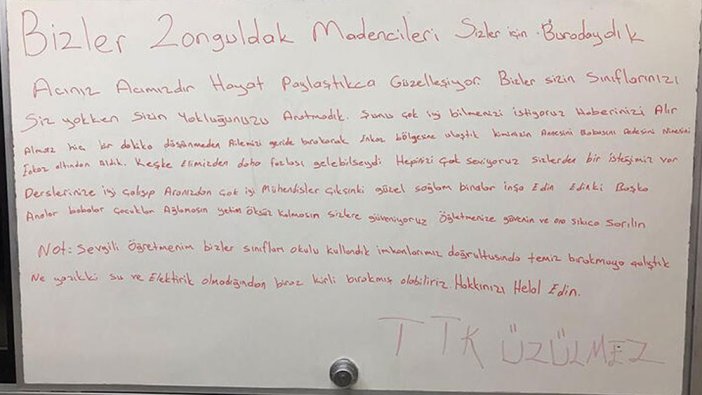 Bizler Zonguldak Madencileri Sizler için Buradaydık
Acınız Acımızdır Hayat Paylaştıkca Güzelleşiyor. Bizler sizin Sınıflarınızı
Siz yokken Sizin Yokluğunuzu Aratmadık. Şunu çok iyi bilmenizi istiyoruz Haberinizi Alır
Almaz hiç bir dakika düşünmeden Ailemizi geride bırakarak Enkaz bölgesine ulaştık kiminizin Annesini Babasını Dedesini Ninesini
Enkaz altından Aldık. Keşke Elimizden daha fazlası gelebilseydi Hepinizi Çok seviyoruz sizlerden bir isteğimiz var
Derslerinize iyi çalışıp Aranızdan Çok iyi Mühendisler çıksınki güzel sağlam binalar inşa Edin Edinki Başka
Analar babalar çocuklar Ağlamasın yetim Öksüz kalmasın sizlere güveniyoruz Öğretmenize güvenin ve ona sıkıca Sarılın
Not: Sevgili Öğretmenim bizler sınıfları okulu kullandık imkanlarımız doğrultusunda temiz bırakmaya çalıştık
Ne yazıkki su ve Elektirik olmadığından biraz kirli bırakmış olabiliriz Hakkınızı Helal Edin.
TTK ÜZÜLMEZ